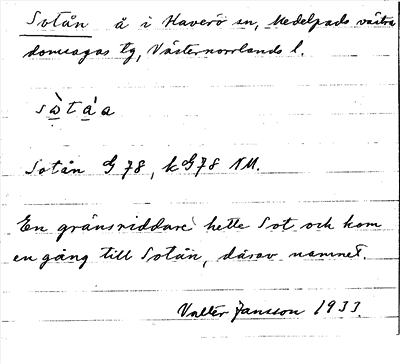 Sotån å i Haverö sn, Medelpads västra
domsagas tg, Västernorrlands l.
sò̀táa
Sotån G 78, kG78 NM.
En gränsriddare hette Sot och kom
en gång till Sotån, därav namnet.
Valter Jansson 1933.